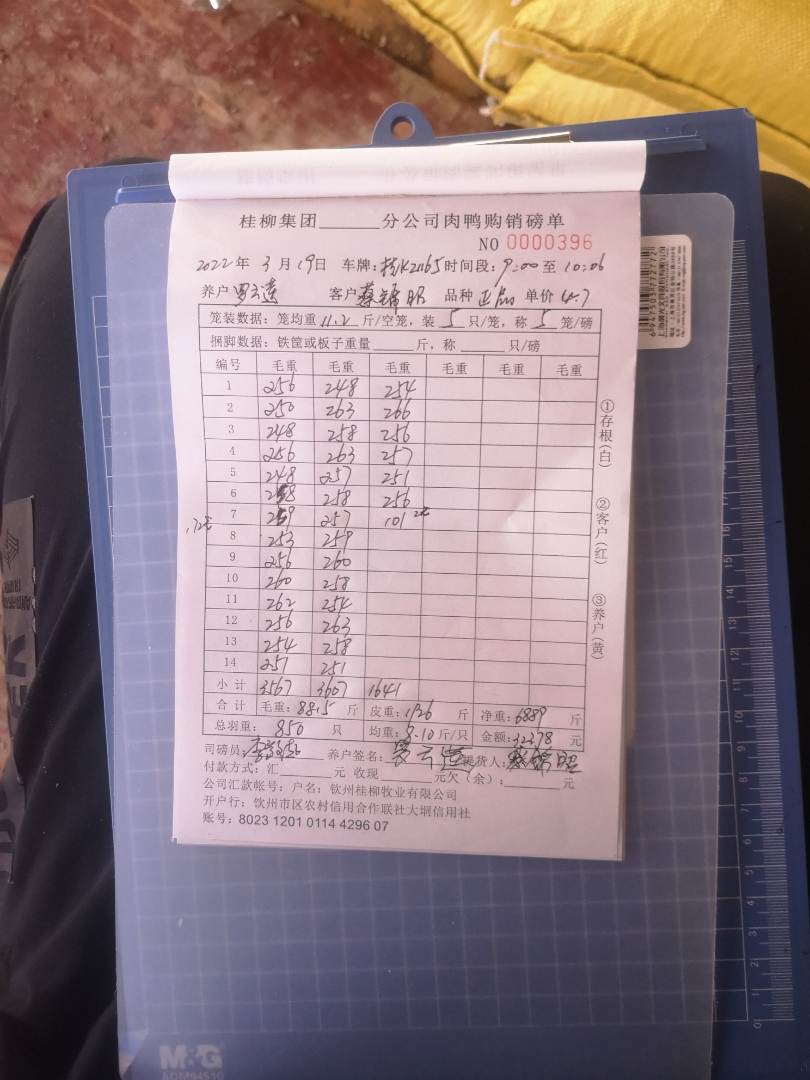 桂柳集团______分公司肉鸭购销磅单
NO 0000396
2022年 3月19日 车牌:桂K21165 时间段:9:00至10:06
养户 罗云莲 客户 蔡锦昭 品种 正品 单价 4.7
笼装数据:笼均重 11.2 斤/空笼,装 5 只/笼,称 5 笼/磅
捆脚数据:铁筐或板子重量______斤,称______只/磅
编号 毛重 毛重 毛重 毛重 毛重 毛重
1 256 248 254
2 250 263 266
3 248 258 256
4 256 263 257
5 248 257 251
6 258 258 256
7 259 257 101
8 253 259
9 256 260
10 260 258
11 262 254
12 256 263
13 254 258
14 257 251
小计 3567 3607 1641
合计 毛重:8815 斤 皮重:1926 斤 净重:6889 斤
总羽重: 850 只 均重:8.10 斤/只 金额:32378 元
司磅员: 养户签名:罗云莲 提货人:蔡锦昭
付款方式:汇______元 收现______元欠(余):______元
公司汇款帐号:户名:钦州桂柳牧业有限公司
开户行:钦州市区农村信用合作联社大垌信用社
账号:8023 1201 0114 4296 07
①存根(白)
②客户(红)
③养户(黄)
6947503772772
M&G